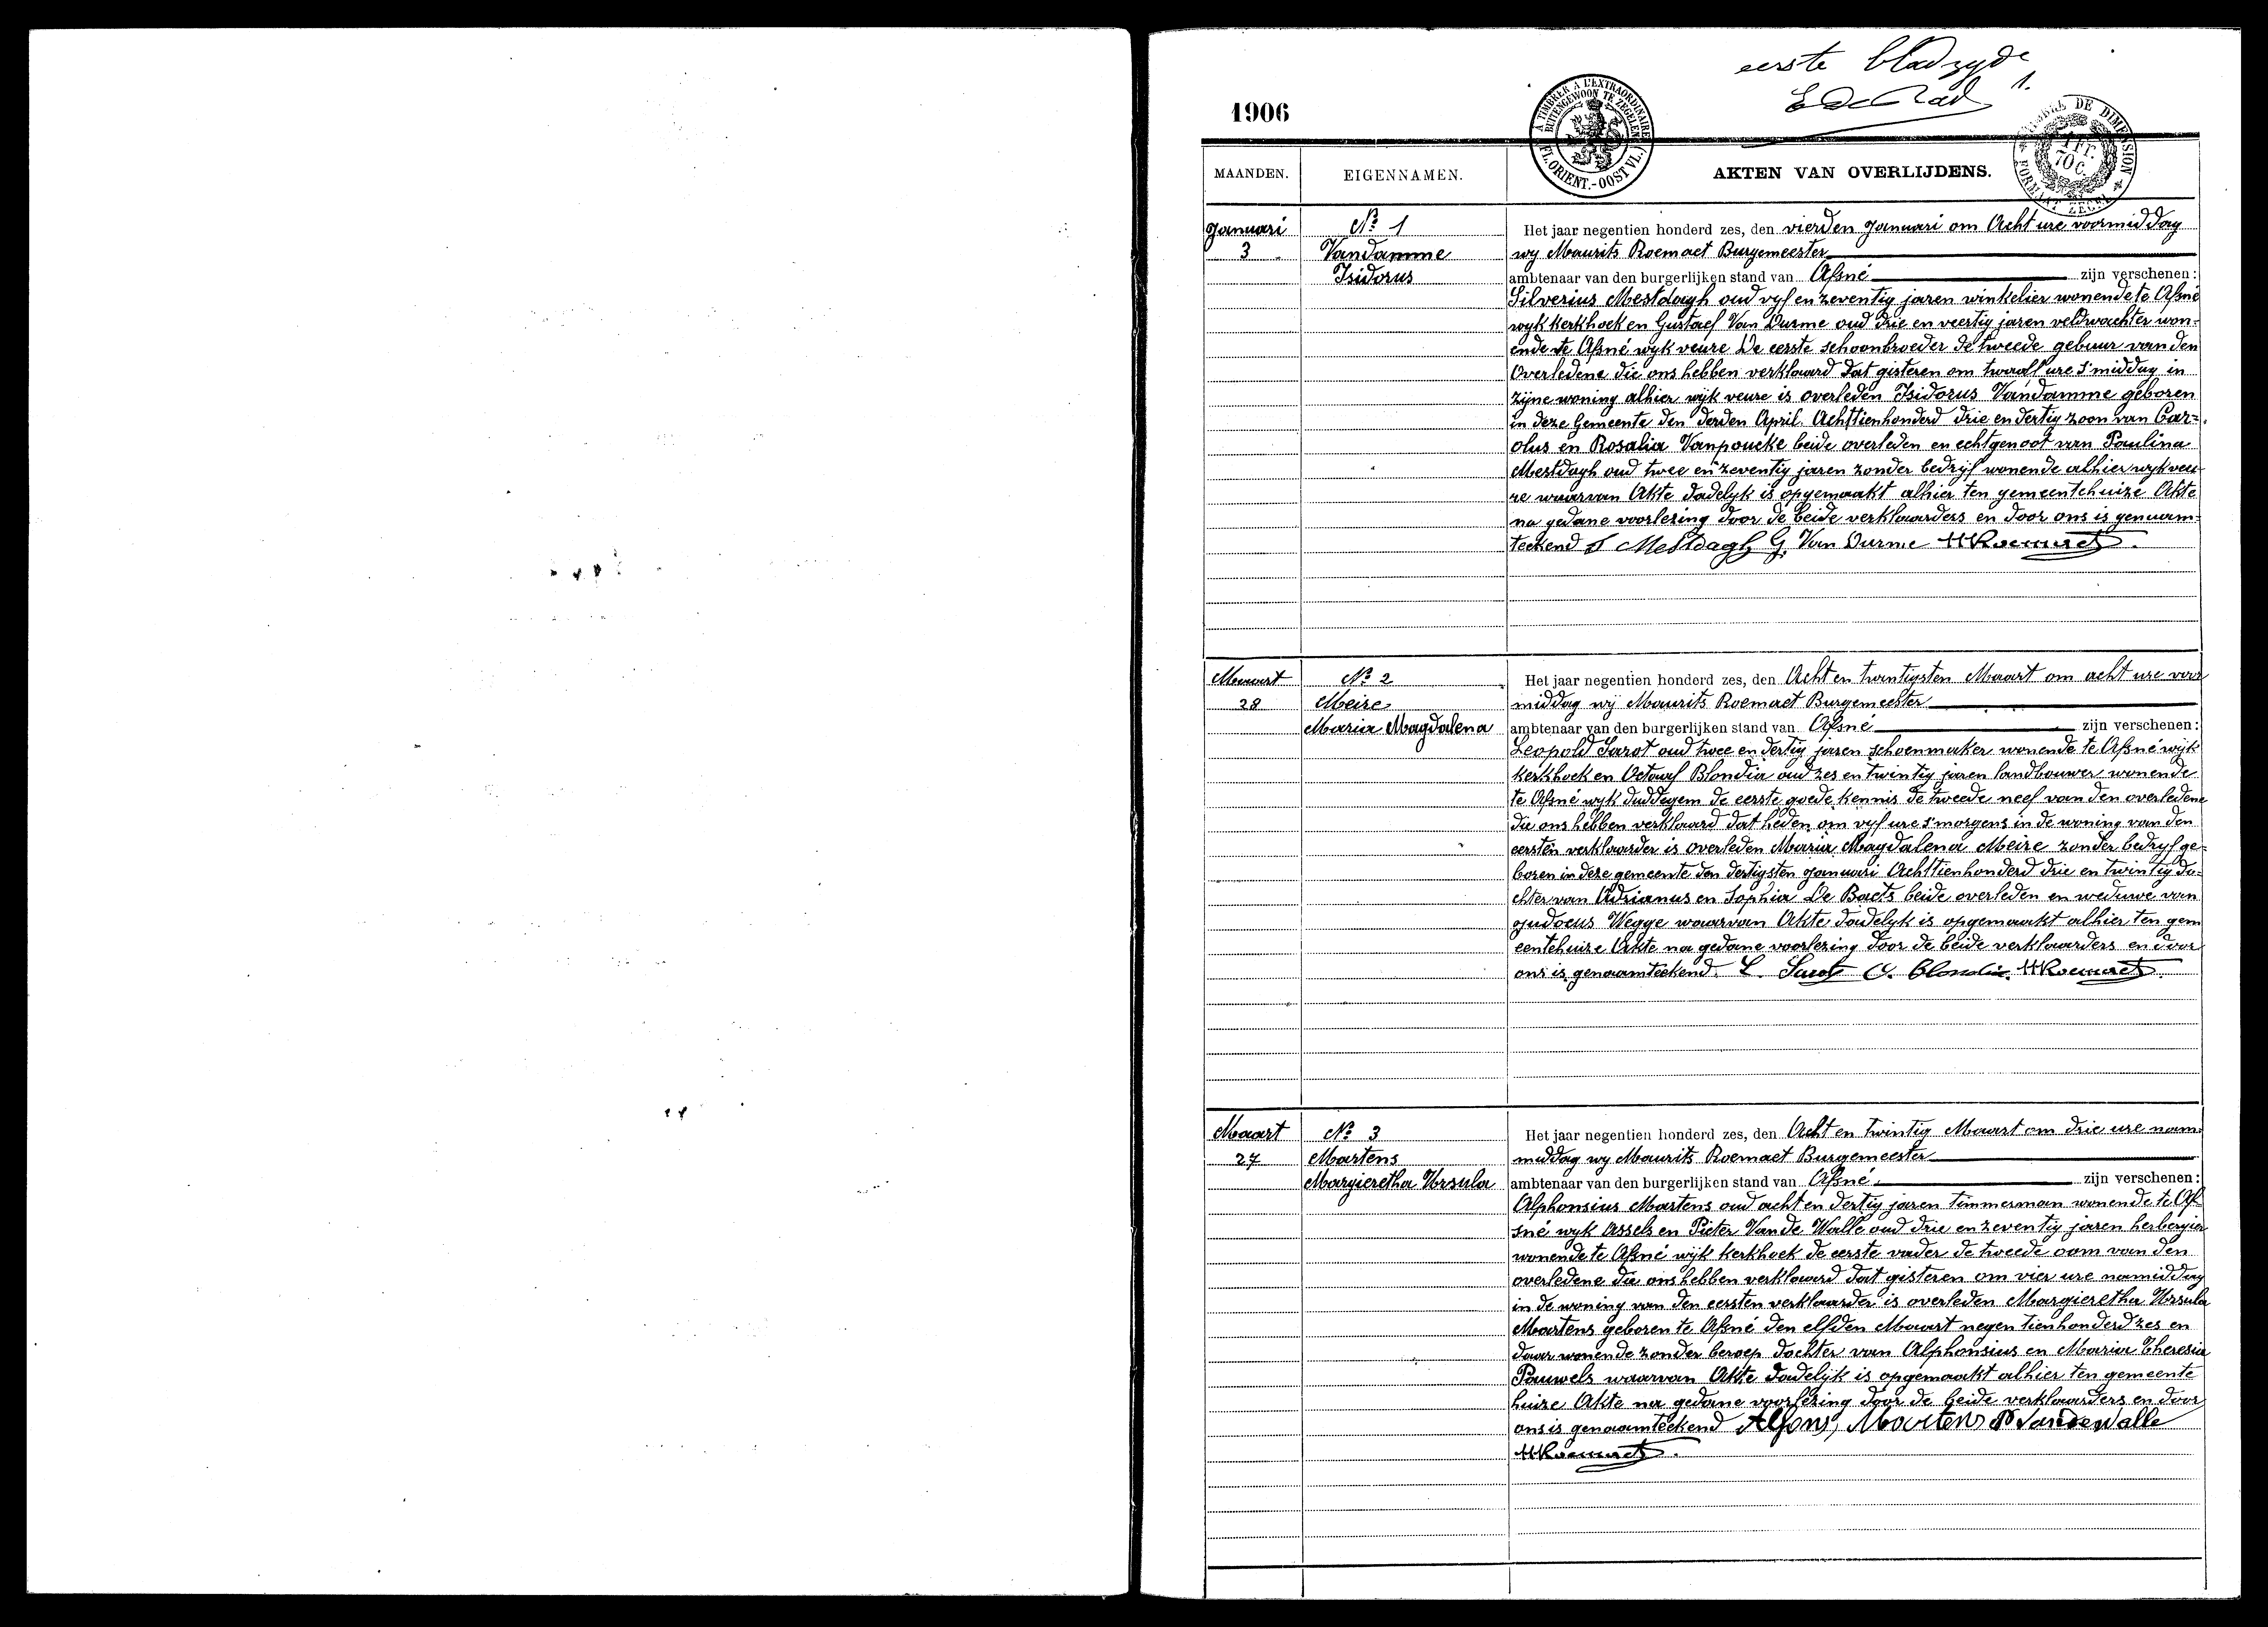 eerste bladzyde
1.
1906
A TIMBRER A L'EXTRAORDINAIRE
BUITENGEWOON TE ZEGELEN
(FL. ORIENT.-OOST VL.)
TIMBRE DE DIMENSION
1 FR.
70 C.
FORMAAT ZEGEL
MAANDEN. EIGENNAMEN. AKTEN VAN OVERLIJDENS.
Januari
3
Nº 1
Vandamme
Isidorus
Het jaar negentien honderd zes, den vierden Januari om Acht ure voormiddag
wy Maurits Roemaet Burgemeester
ambtenaar van den burgerlijken stand van Afsné zijn verschenen:
Silverius Mestdagh oud vyf en zeventig jaren winkelier wonende te Afsné
wyk kerkhoek en Gustaef Van Durme oud drie en veertig jaren veldwachter won-
ende te Afsné wyk veure De eerste schoonbroeder de tweede gebuur van den
Overledene die ons hebben verklaard dat gisteren om twaalf ure s'middag in
zijne woning alhier wijk veure is overleden Isidorus Vandamme geboren
in deze Gemeente den derden April Achttienhonderd drie en dertig zoon van Car-
olus en Rosalia Vanpoucke beide overleden en echtgenoot van Paulina
Mestdagh oud twee en zeventig jaren zonder bedrijf wonende alhier wyk veu
re waarvan Akte dadelyk is opgemaakt alhier ten gemeentehuize Akte
na gedane voorlezing door de beide verklaarders en door ons is genaam-
teekend S Mestdagh G. Van Durme MRoemaet.
Maart
28
Nº 2
Meire
Maria Magdalena
Het jaar negentien honderd zes, den Acht en twintigsten Maart om acht ure voor
middag wij Maurits Roemaet Burgemeester
ambtenaar van den burgerlijken stand van Afsné zijn verschenen:
Leopold Sarot oud twee en dertig jaren schoenmaker wonende te Afsné wijk
kerkhoek en Octaaf Blondia oud zes en twintig jaren landbouwer wonende
te Afsné wyk duddegem de eerste goede kennis de tweede neef van den overledene
die ons hebben verklaard dat heden om vyf ure s'morgens in de woning van den
eersten verklaarder is overleden Maria Magdalena Meire zonder bedryf ge-
boren in deze gemeente den dertigsten januari Achttienhonderd drie en twintig do-
chter van Adrianus en Sophia De Baets beide overleden en weduwe van
Judocus Wegge waarvan Akte dadelyk is opgemaakt alhier ten gem
eentehuize Akte na gedane voorlezing door de beide verklaarders en door
ons is genaamteekend. L. Sarot O. Blondia. MRoemaet.
Maart
27
Nº 3
Martens
Margieretha Ursula
Het jaar negentien honderd zes, den Acht en twintig Maart om drie ure nam
middag wy Maurits Roemaet Burgemeester
ambtenaar van den burgerlijken stand van Afsné zijn verschenen:
Alphonsius Martens oud acht en dertig jaren timmerman wonende te Af-
sné wyk Assels en Pieter Van de Walle oud drie en zeventig jaren herbergier
wonende te Afsné wijk kerkhoek de eerste vader de tweede oom van den
overledene die ons hebben verklaard dat gisteren om vier ure namiddag
in de woning van den eersten verklaarder is overleden Margieretha Ursula
Martens geboren te Afsné den elfden Maart negentienhonderd zes en
daar wonende zonder beroep dochter van Alphonsius en Maria Theresia
Pauwels waarvan Akte dadelijk is opgemaakt alhier ten gemeente
huize Akte na gedane voorlezing door de beide verklaarders en door
ons is genaamteekend Alfons, Martens P VandeWalle
MRoemaet.